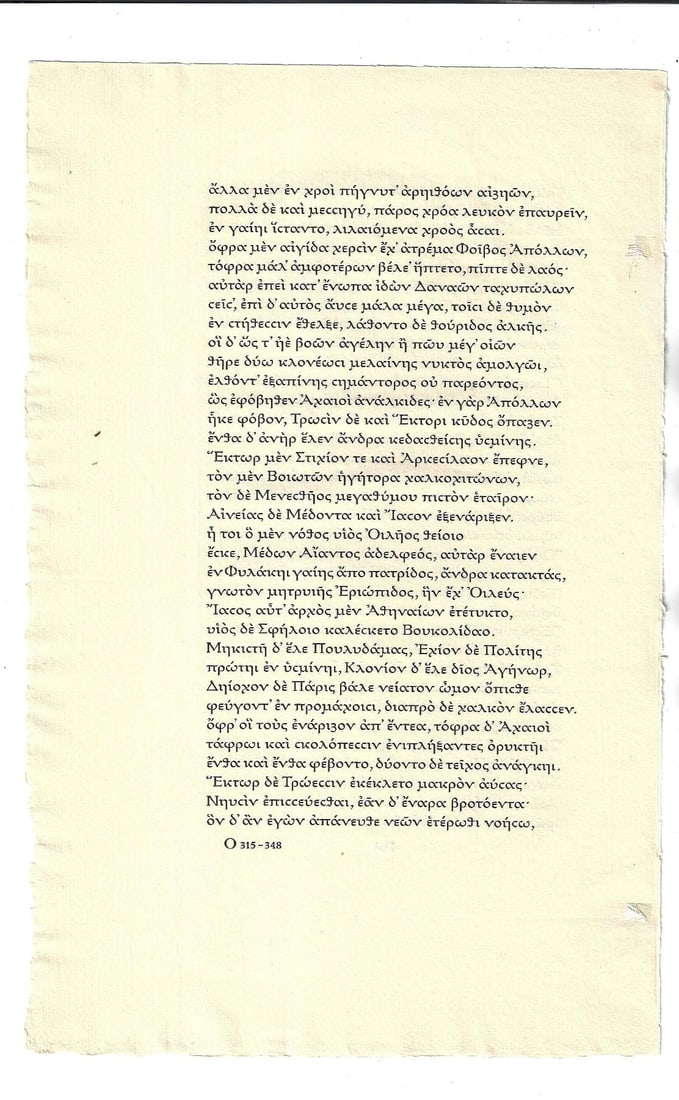 ἄλλα μὲν ἐν χροῒ πήγνυτ' ἀρηιθόων αἰζηῶν,
πολλὰ δὲ καὶ μεϲϲηγύ, πάροϲ χρόα λευκὸν ἐπαυρεῖν,
ἐν γαίηι ἵϲταντο, λιλαιόμενα χροὸϲ ἆϲαι.
ὄφρα μὲν αἰγίδα χερϲὶν ἔχ' ἀτρέμα Φοῖβοϲ Ἀπόλλων,
τόφρα μάλ' ἀμφοτέρων βέλε' ἥπτετο, πῖπτε δὲ λαόϲ·
αὐτὰρ ἐπεὶ κατ' ἔνωπα ἰδὼν Δαναῶν ταχυπώλων
ϲεῖϲ', ἐπὶ δ' αὐτὸϲ ἄυϲε μάλα μέγα, τοῖϲι δὲ θυμὸν
ἐν ϲτήθεϲϲιν ἔθελξε, λάθοντο δὲ θούριδοϲ ἀλκῆϲ.
οἳ δ' ὥϲ τ' ἠὲ βοῶν ἀγέλην ἢ πῶυ μέγ' οἰῶν
θῆρε δύω κλονέωϲι μελαίνηϲ νυκτὸϲ ἀμολγῶι,
ἐλθόντ' ἐξαπίνηϲ ϲημάντοροϲ οὐ παρεόντοϲ,
ὣϲ ἐφόβηθεν Ἀχαιοὶ ἀνάλκιδεϲ· ἐν γὰρ Ἀπόλλων
ἧκε φόβον, Τρωϲὶν δὲ καὶ Ἕκτορι κῦδοϲ ὄπαζεν.
ἔνθα δ' ἀνὴρ ἕλεν ἄνδρα κεδαϲθείϲηϲ ὑϲμίνηϲ.
Ἕκτωρ μὲν Στιχίον τε καὶ Ἀρκεϲίλαον ἔπεφνε,
τὸν μὲν Βοιωτῶν ἡγήτορα χαλκοχιτώνων,
τὸν δὲ Μενεϲθῆοϲ μεγαθύμου πιϲτὸν ἑταῖρον·
Αἰνείαϲ δὲ Μέδοντα καὶ Ἴαϲον ἐξενάριξεν.
ἦ τοι ὃ μὲν νόθοϲ υἱὸϲ Ὀιλῆοϲ θείοιο
ἔϲκε, Μέδων Αἴαντοϲ ἀδελφεόϲ, αὐτὰρ ἔναιεν
ἐν Φυλάκηι γαίηϲ ἄπο πατρίδοϲ, ἄνδρα κατακτάϲ,
γνωτὸν μητρυιῆϲ Ἐριώπιδοϲ, ἣν ἔχ' Ὀιλεύϲ·
Ἴαϲοϲ αὖτ' ἀρχὸϲ μὲν Ἀθηναίων ἐτέτυκτο,
υἱὸϲ δὲ Σφήλοιο καλέϲκετο Βουκολίδαο.
Μηκιϲτῆ δ' ἕλε Πουλυδάμαϲ, Ἐχίον δὲ Πολίτηϲ
πρώτηι ἐν ὑϲμίνηι, Κλονίον δ' ἕλε δῖοϲ Ἀγήνωρ,
Δηίοχον δὲ Πάριϲ βάλε νείατον ὦμον ὄπιϲθε
φεύγοντ' ἐν προμάχοιϲι, διαπρὸ δὲ χαλκὸν ἔλαϲϲεν.
ὄφρ' οἳ τοὺϲ ἐνάριζον ἀπ' ἔντεα, τόφρα δ' Ἀχαιοὶ
τάφρωι καὶ ϲκολόπεϲϲιν ἐνιπλήξαντεϲ ὀρυκτῆι
ἔνθα καὶ ἔνθα φέβοντο, δύοντο δὲ τεῖχοϲ ἀνάγκηι.
Ἕκτωρ δὲ Τρώεϲϲιν ἐκέκλετο μακρὸν ἀύϲαϲ·
Νηυϲὶν ἐπιϲϲεύεϲθαι, ἐᾶν δ' ἔναρα βροτόεντα·
ὃν δ' ἂν ἐγὼν ἀπάνευθε νεῶν ἑτέρωθι νοήϲω,
Ο 315-348